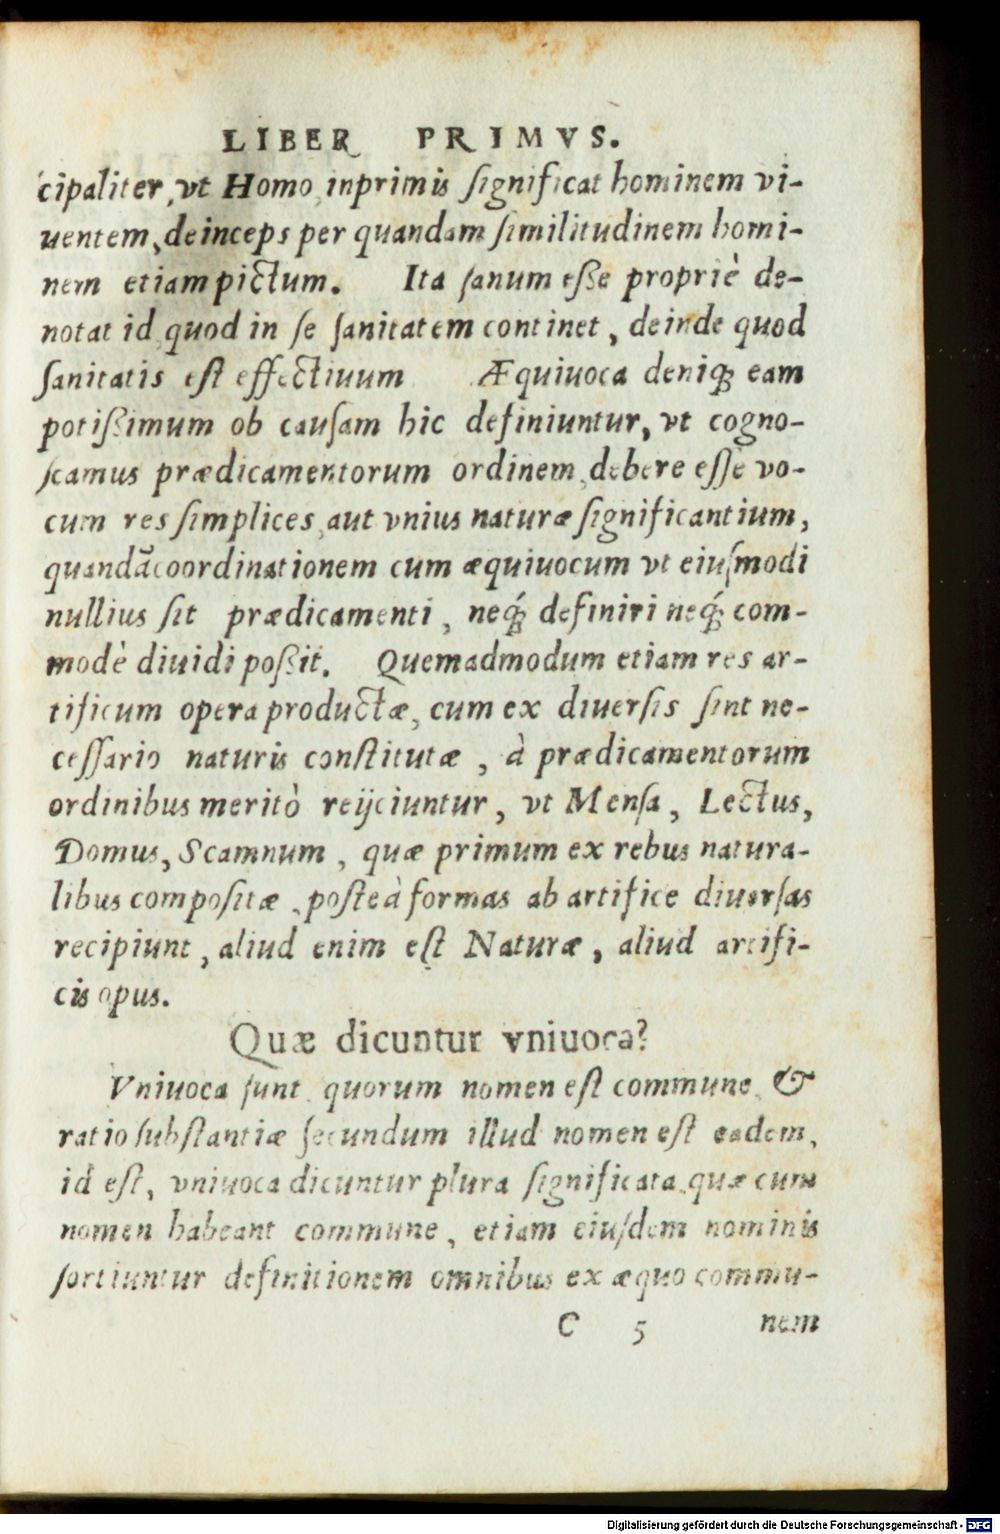 LIBER PRIMVS.
cipaliter, vt Homo inprimis ſignificat hominem vi-
uentem, deinceps per quandam ſimilitudinem homi-
nem etiam pictum. Ita ſanum eſſe propriè de-
notat id quod in ſe ſanitatem continet, deinde quod
ſanitatis eſt effectiuum Æquiuoca deniq; eam
potiſſimum ob cauſam hic definiuntur, vt cogno-
ſcamus prædicamentorum ordinem debere eſſe vo-
cum res ſimplices, aut vnius naturæ ſignificantium,
quandã coordinationem cum æquiuocum vt eiuſmodi
nullius ſit prædicamenti, neq́; definiri neq́; com-
modè diuidi poſſit. Quemadmodum etiam res ar-
tificum opera productæ, cum ex diuerſis ſint ne-
ceſſario naturis conſtitutæ, à prædicamentorum
ordinibus meritò reijciuntur, vt Menſa, Lectus,
Domus, Scamnum, quæ primum ex rebus natura-
libus compoſitæ, poſteà formas ab artifice diuerſas
recipiunt, aliud enim eſt Naturæ, aliud artifi-
cis opus.
Quæ dicuntur vniuoca?
Vniuoca ſunt quorum nomen eſt commune, &
ratio ſubſtantiæ ſecundum illud nomen eſt eadem,
id eſt, vniuoca dicuntur plura ſignificata, quæ cum
nomen habeant commune, etiam eiuſdem nominis
ſortiuntur definitionem omnibus ex æquo commu-
C 5 nem
Digitalisierung gefördert durch die Deutsche Forschungsgemeinschaft - DFG